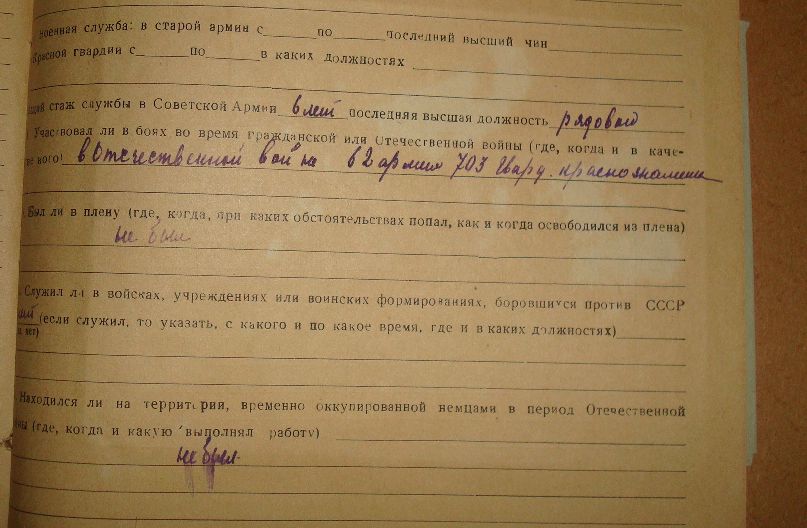 военная служба: в старой армии с______по______последний высший чин______
Красной гвардии с______по______в каких должностях ______
щий стаж службы в Советской Армии 6 лет последняя высшая должность рядовой
Участвовал ли в боях во время гражданской или Отечественной войны (где, когда и в каче-
ве кого) в Отечественной войне в 2 армии 703 Гвард. краснознамен
Был ли в плену (где, когда, при каких обстоятельствах попал, как и когда освободился из плена)
не был
Служил ли в войсках, учреждениях или воинских формированиях, боровшихся против СССР
(если служил, то указать, с какого и по какое время, где и в каких должностях)______
и нет)
Находился ли на территории, временно оккупированной немцами в период Отечественной
ны (где, когда и какую выполнял работу) ______
не был